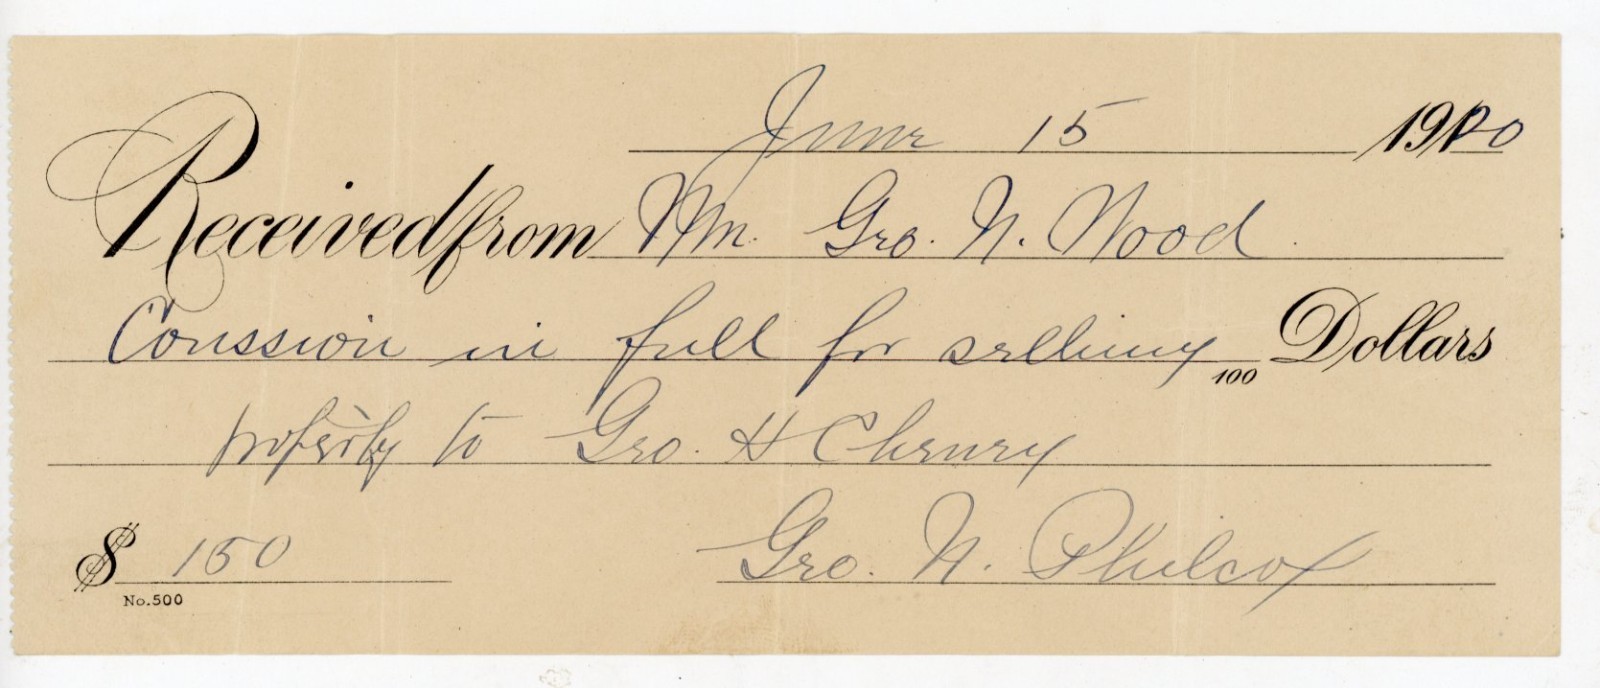 June 15 1920
Received from Mr. Geo. N. Wood
Conssion in full for selling 100 Dollars
property to Geo. H Chenry
$ 150 Geo. N. Philcox
No.500